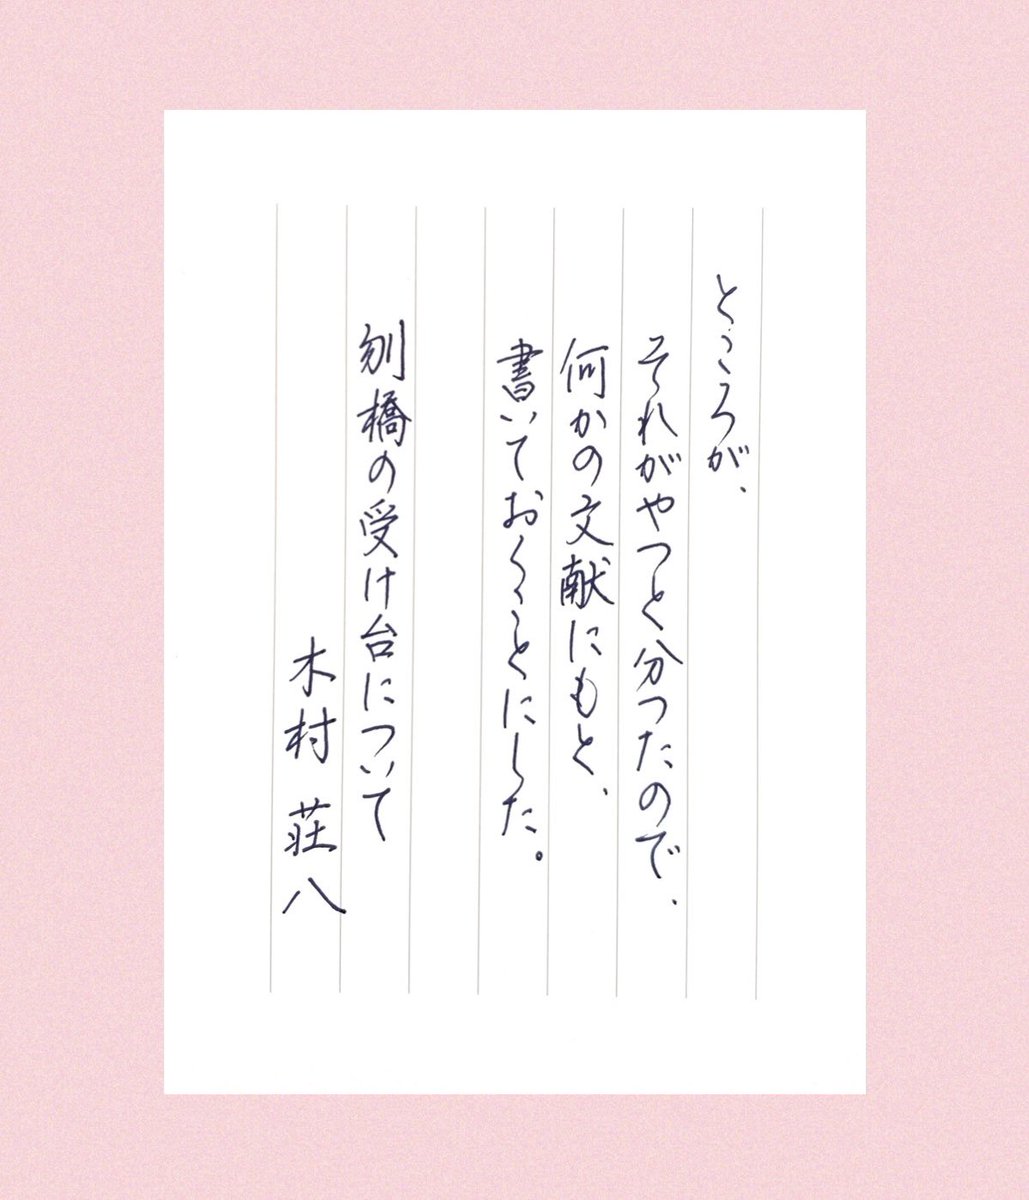 ところが、
それがやつと分つたので、
何かの文献にもと、
書いておくことにした。
刎橋の受け台について
木村 荘八